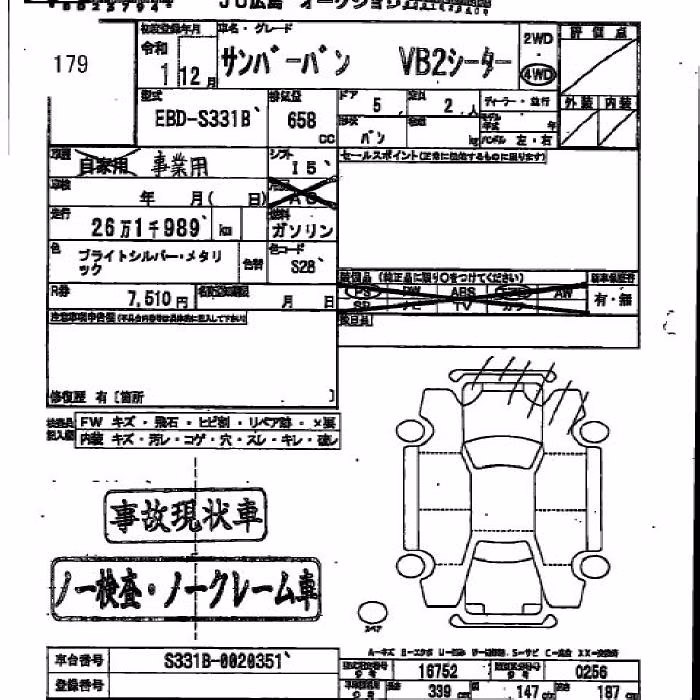 JU広島 オークション
179
初度登録年月
令和
1 12月
車名・グレード
サンバーバン VB2シーター
2WD
4WD
評価点
外装 内装
型式
EBD-S331B
排気量
658 cc
ドア 5
定員 2 人
形状 バン
kg
ディーラー・並行
モデル年式 年
ハンドル 左・右
車歴
自家用 事業用
シフト
I5
セールスポイント(正常に機能するものに限ります)
車検
年 月( 日)
AC
走行
26万1千989 km
燃料
ガソリン
色
ブライトシルバー・メタリック
色替
色コード
S28
R券
7,510円
月 日
装備品 (純正品に限り○をつけてください)
PS PW ABS AW
SR ナビ TV カワ
有・無
注意事項申告欄
修復歴 有〔箇所 〕
検査員記入欄
FW キズ・飛石・ヒビ割・リペア跡・×要
内装 キズ・汚レ・コゲ・穴・スレ・キレ・破レ
事故現状車
ノー検査・ノークレーム車
スペア
車台番号
S331B-0020351
登録番号
16752
0256
339 cm 147 cm 187 cm